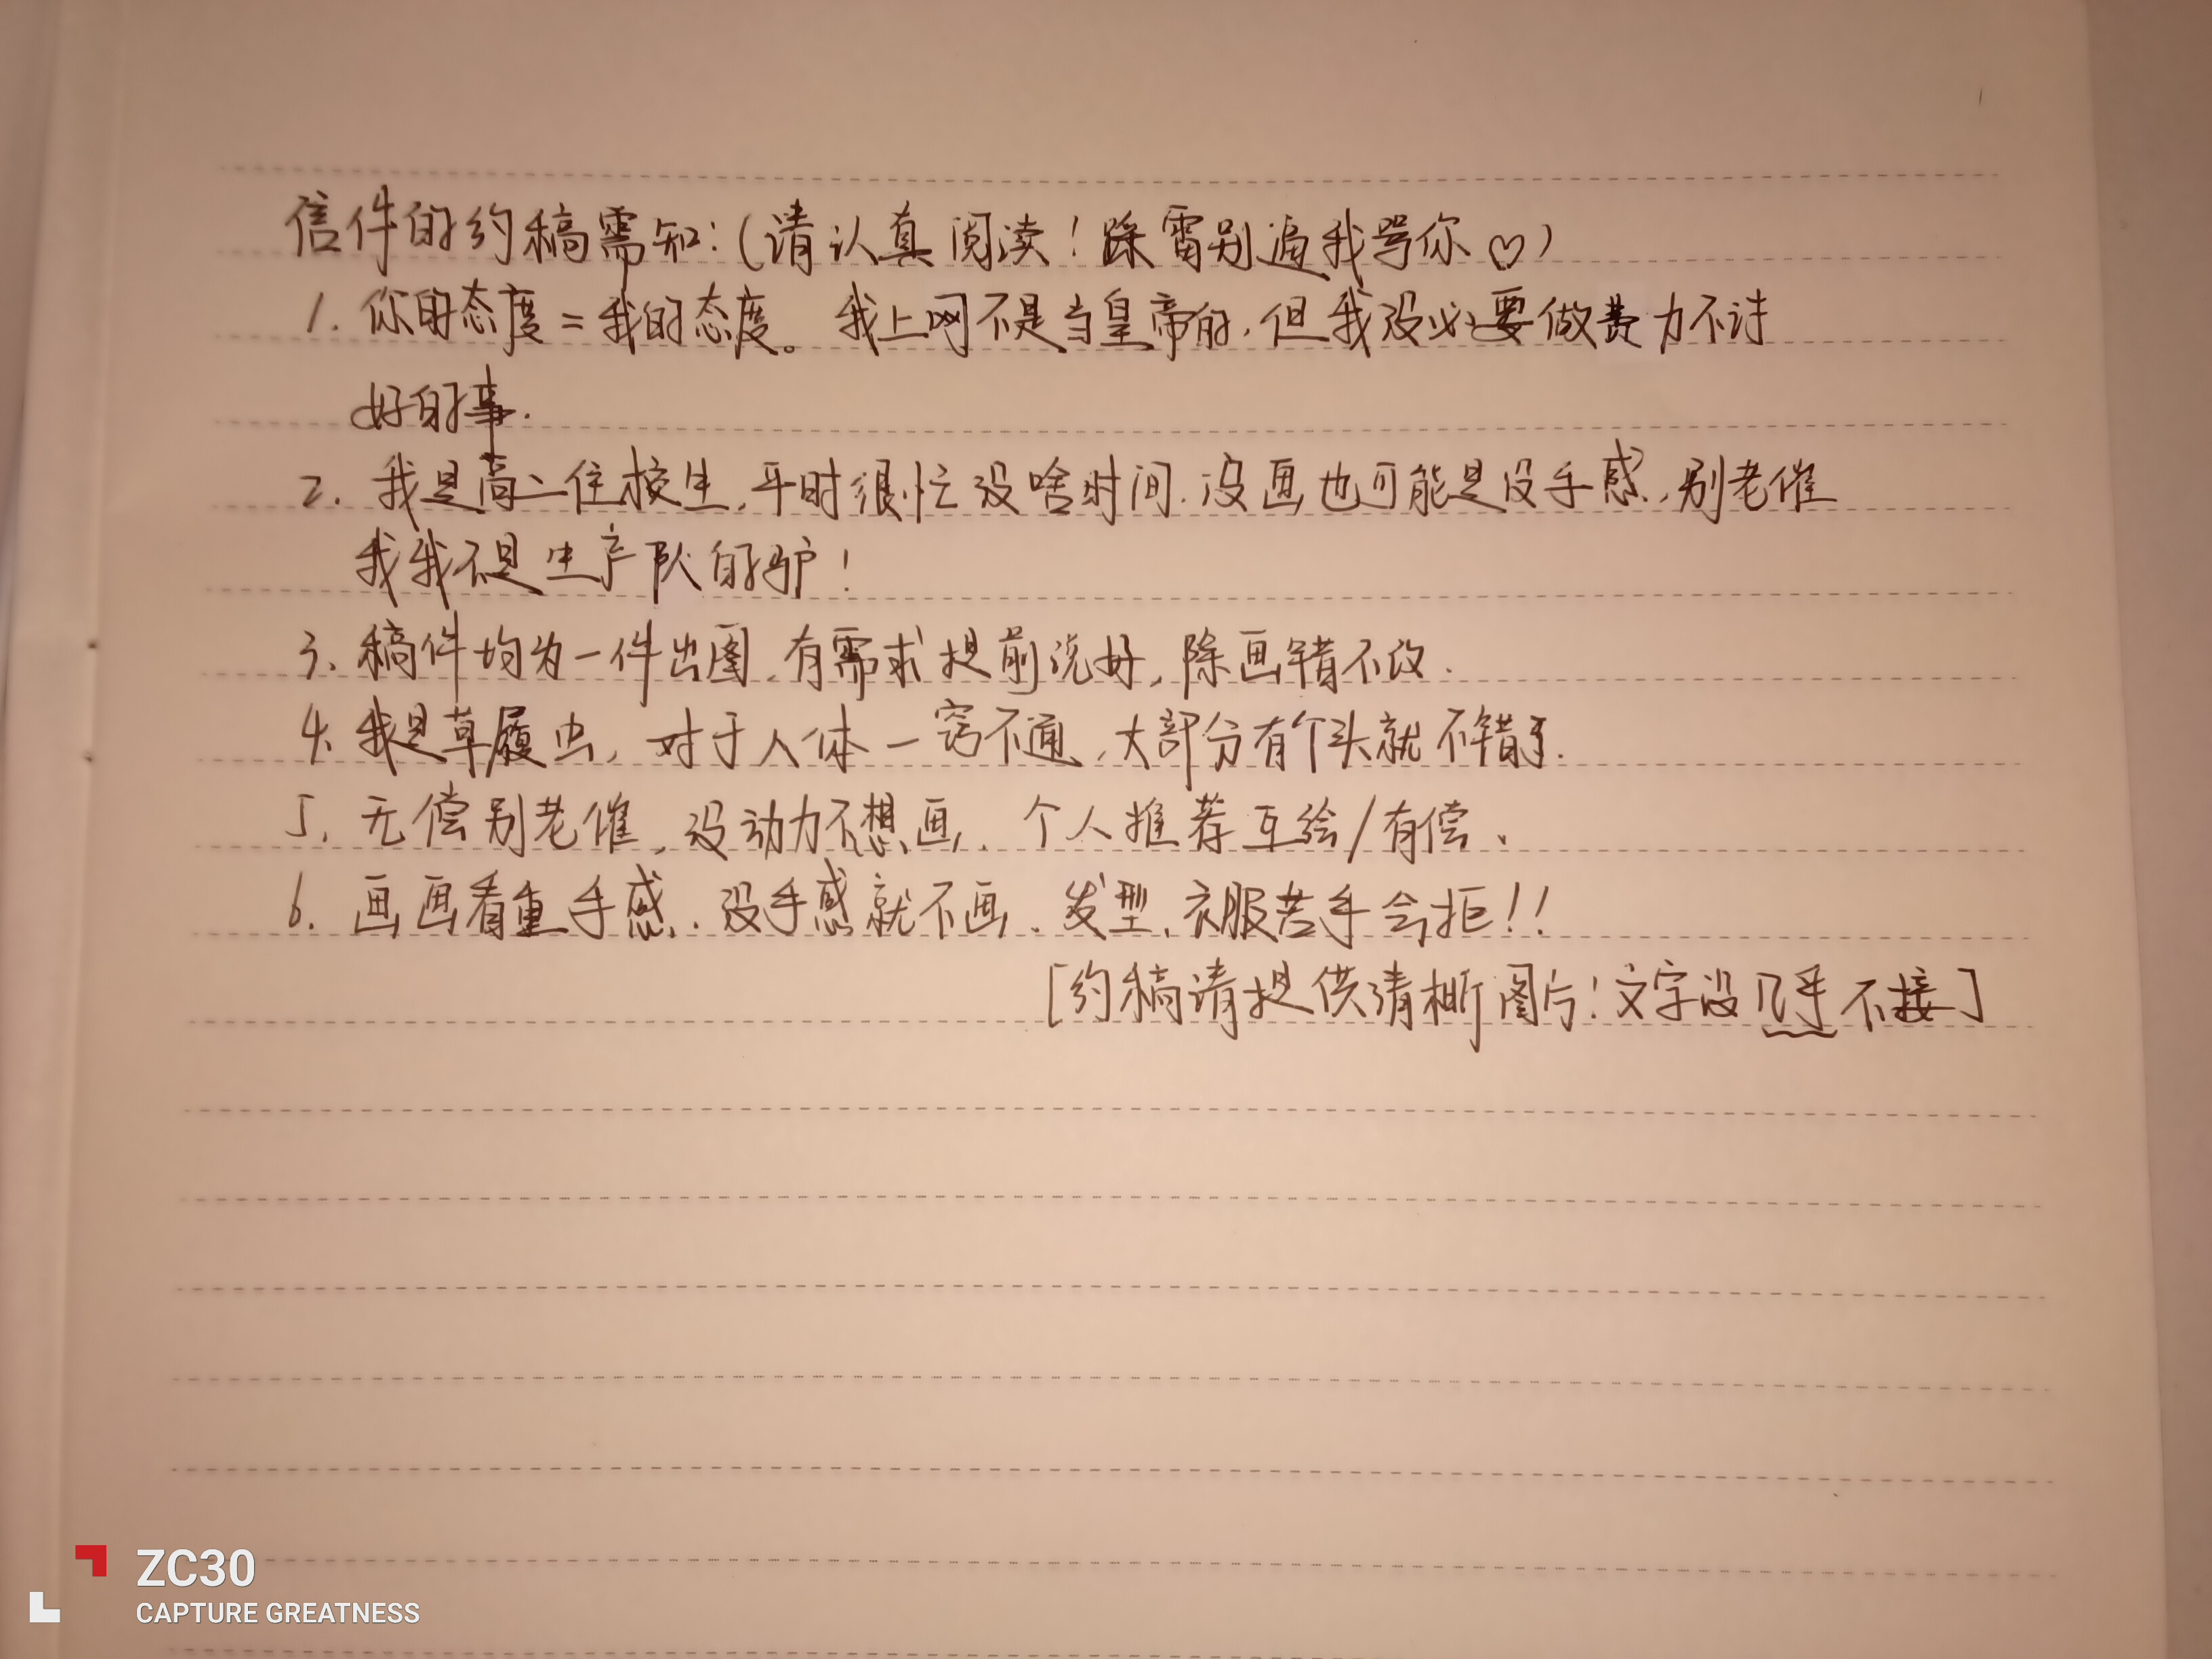 信件的约稿需知:(请认真阅读!踩雷别逼我骂你♡)
1. 你的态度=我的态度。我上网不是当皇帝的,但我没必要做费力不讨
好的事.
2. 我是高二住校生,平时很忙没啥时间.没画也可能是没手感,别老催
我我不是生产队的驴!
3、稿件均为一件出图.有需求提前说好,除画错不改.
4、我是草履虫,对于人体一窍不通,大部分有个头就不错了.
5、无偿别老催,没动力不想画、个人推荐互绘/有偿、
6. 画画看重手感.没手感就不画.发型、衣服苦手会拒!!
[约稿请提供清晰图片!文字设几乎不接]
ZC30
CAPTURE GREATNESS